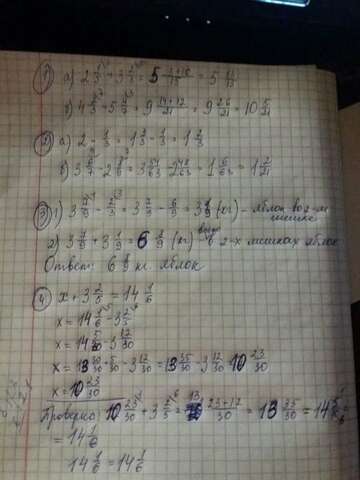 1) а) 2 + 3 = 5 = 5
б) 4 + 5 = 9 (14+12)/21 = 9 26/21 = 10 5/21
2) а) 2 - 1/3 = 1 3/3 - 1/3 = 1 2/3
б) 3 6/7 - 2 = 3 54/63 - 2 = 1 6/63 = 1 2/21
3) 1) 3 7/9 - 2/3 = 3 7/9 - 6/9 = 3 1/9 (кг) - яблок во 2-м
мешке
2) 3 7/9 + 3 1/9 = 6 8/9 (кг) всего в 2-х мешках яблок
Ответ: 6 8/9 кг. яблок
4) x + 3 2/5 = 14 1/6
x = 14 1/6 - 3 2/5
x = 14 5/30 - 3 12/30
x = 13 30/30 + 5/30 - 3 12/30 = 13 35/30 - 3 12/30 = 10 23/30
x = 10 23/30
Проверка: 10 23/30 + 3 2/5 = 13 (23+12)/30 = 13 35/30 = 14 5/30 =
= 14 1/6
14 1/6 = 14 1/6